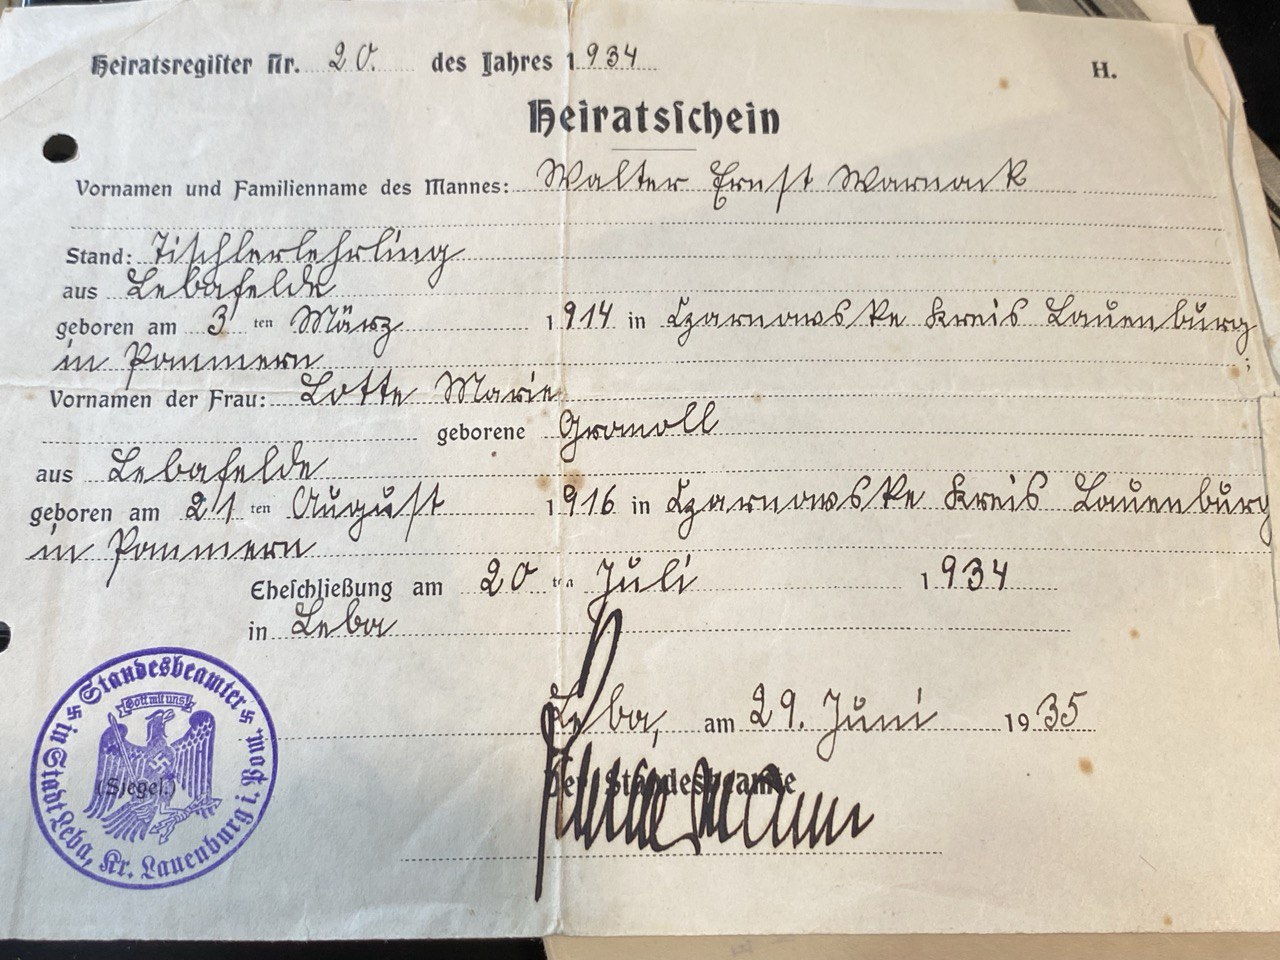 Heiratsregister Nr. 20. des Jahres 1934
H.
Heiratsschein
Vornamen und Familienname des Mannes: Walter Ernst Warnack
Stand: Tischlerlehrling
aus Lebafelde
geboren am 3ten März 1914 in Czarnowske Kreis Lauenburg
in Pommern ;
Vornamen der Frau: Lotte Marie
geborene Gromoll
aus Lebafelde
geboren am 21ten August 1916 in Czarnowske Kreis Lauenburg
in Pommern
Eheschließung am 20ten Juli 1934
in Leba
Leba, am 29. Juni 1935
Der Standesbeamte
Standesbeamter
in Stadt Leba, Kr. Lauenburg i. Pom.
Gott mit uns
(Siegel.)